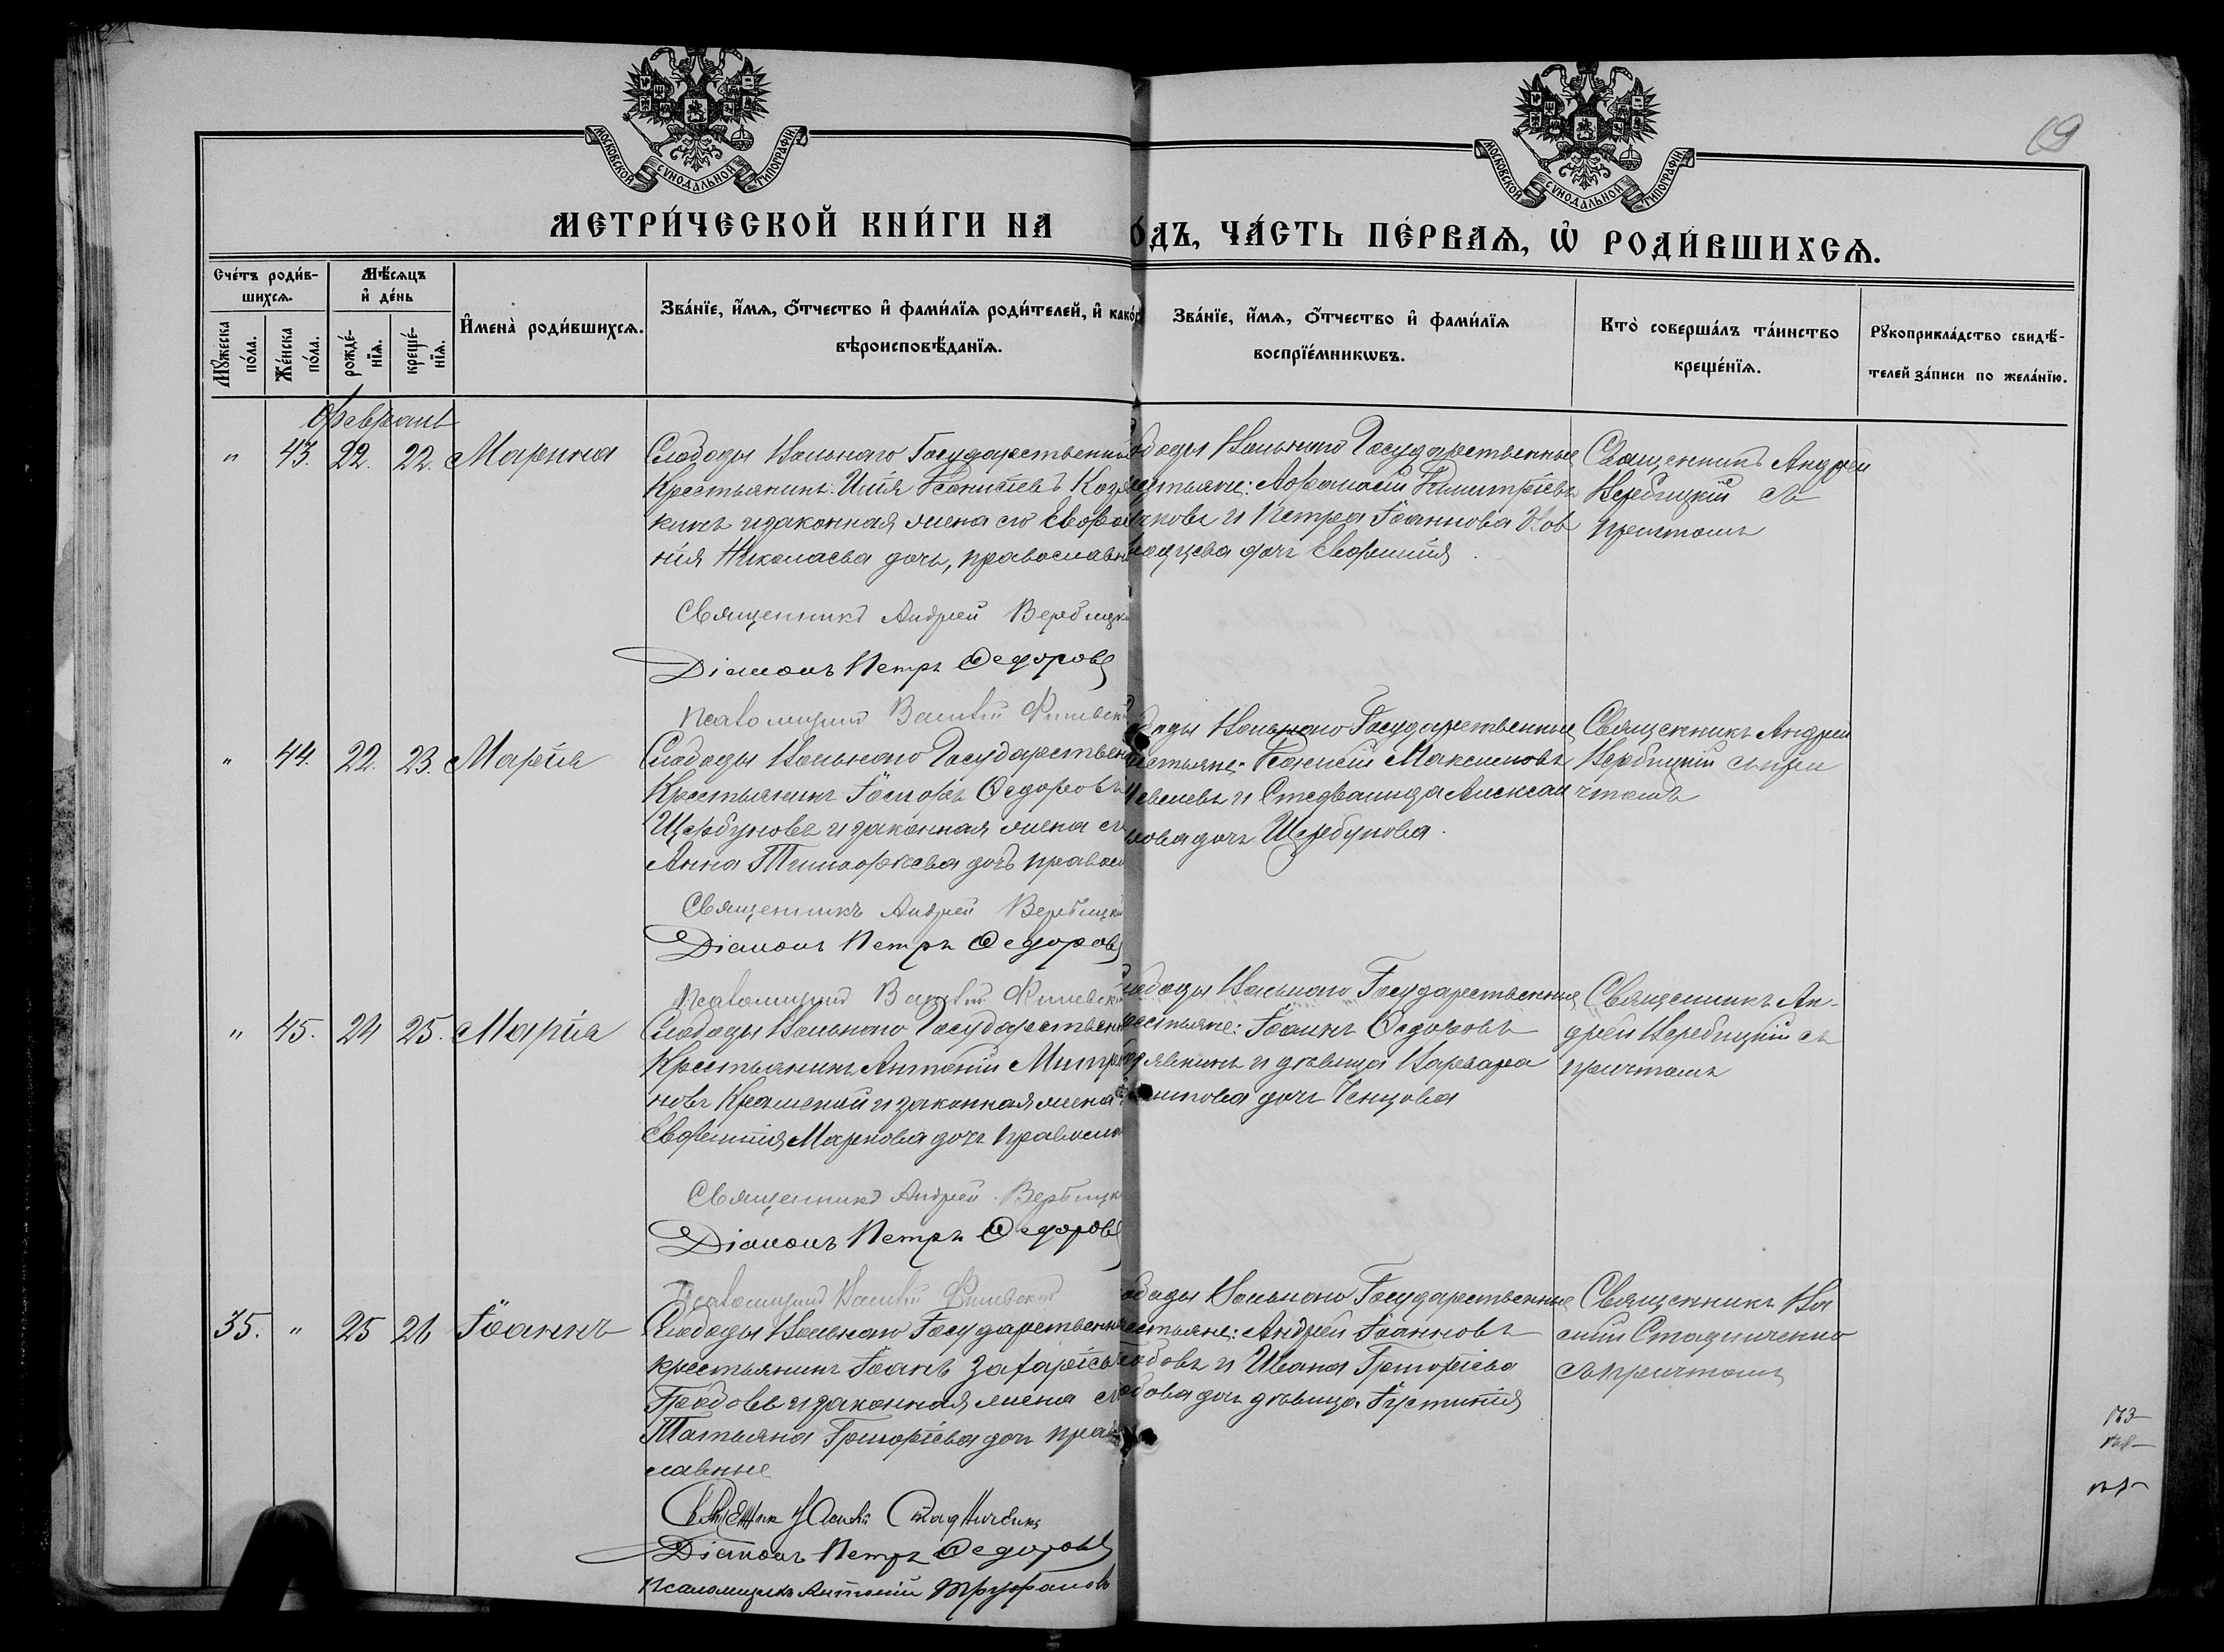 МОСКОВСКОЙ СѴНОДАЛЬНОЙ ТИПОГРАФІИ
МОСКОВСКОЙ СѴНОДАЛЬНОЙ ТИПОГРАФІИ
69
МЕТРИ́ЧЕСКОЙ КНИ́ГИ НА
О́ДЪ, ЧА́СТЬ ПЕ́РВАѦ, Ѿ РОДИ́ВШИХСѦ.
Сче́тъ роди́в-
шихсѧ.
Мѣ́сѧцъ
и҆ де́нь
Мꙋ́жеска по́ла.
Же́нска по́ла.
рожде́-нїѧ.
креще́-нїѧ.
И҆мена̀ роди́вшихсѧ.
Зва́нїе, и҆́мѧ, ѻ҆́тчество и҆ фами́лїѧ роди́телей, и҆ како́г
вѣроисповѣ́данїѧ.
Зва́нїе, и҆́мѧ, ѻ҆́тчество и҆ фами́лїѧ
воспрїе́мникѡвъ.
Кто̀ соверша́лъ та́инство
креще́нїѧ.
Рꙋкоприкла́дство свидѣ́-
телей за́писи по жела́нїю.
Февраль
" 43. 22. 22. Марина
Слободы Вольнаго Государственный
Крестьянинъ: Илія Козь
кинъ и законная жена его Евфи
мія Николаева дочь, православн
Священникъ Андрей Вербицкі
Діаконъ Петръ Ѳедоровъ
Псаломщикъ Василій
ободы Вольнаго Государственные
естьяне: Аѳанасій Димитріевъ
чковъ и Петра Іоаннова Нов
дочь Евфимія
Священникъ Андрей
Вербицкій съ
причтомъ
" 44. 22. 23. Марія
Слободы Вольнаго Государствен
Крестьянинъ Ѳедоровъ
Щербуновъ и законная жена его
Анна Тимоѳѣева дочь правосл
Священникъ Андрей Вербицкі
Діаконъ Петръ Ѳедоровъ
Псаломщикъ Василій
ободы Вольнаго Государственные
естьяне: Максимовъ
и Алексан
нова дочь Щербунова.
Священникъ Андрей
Вербицкій съ при
чтомъ
" 45. 24 25. Марія
Слободы Вольнаго Государствен
Крестьянинъ Антоній Митро
новъ и законная жена его
Евфимія Маркова дочь правосла
Священникъ Андрей Вербицк
Діаконъ Петръ Ѳедоровъ
Псаломщикъ Василій
ободы Вольнаго Государственные
рестьяне: Іоаннъ Ѳедоровъ
и дѣвица Варвара
дочь Ченцова
Священникъ Ан-
дрей Вербицкій съ
причтомъ
35. " 25 26 Іоаннъ
Слободы Вольнаго Государственны
крестьянинъ Іоанъ Захаріевъ
и законная жена его
Татьяна Григоріева дочь право
славные
Священникъ Стадниченко
Діаконъ Петръ Ѳедоровъ
Псаломщикъ Антоній Труфановъ
ободы Вольнаго Государственные
естьяне: Андрей Іоанновъ
и Ивана Григоріева
дочь дѣвица Іустинія
Священникъ Ва
силій Стадниченко
съ причтомъ